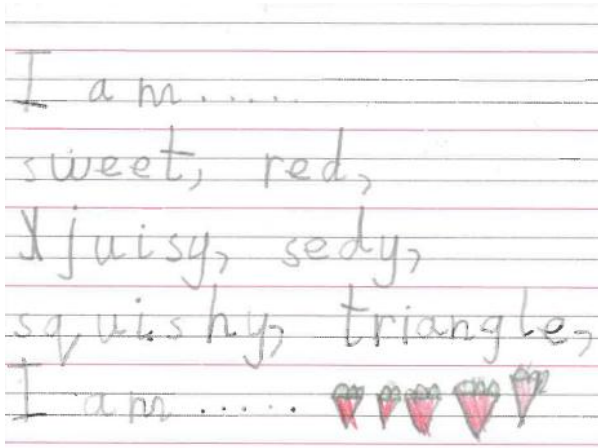 I am.....
sweet, red,
juisy, sedy,
squishy, triangle,
I am.....